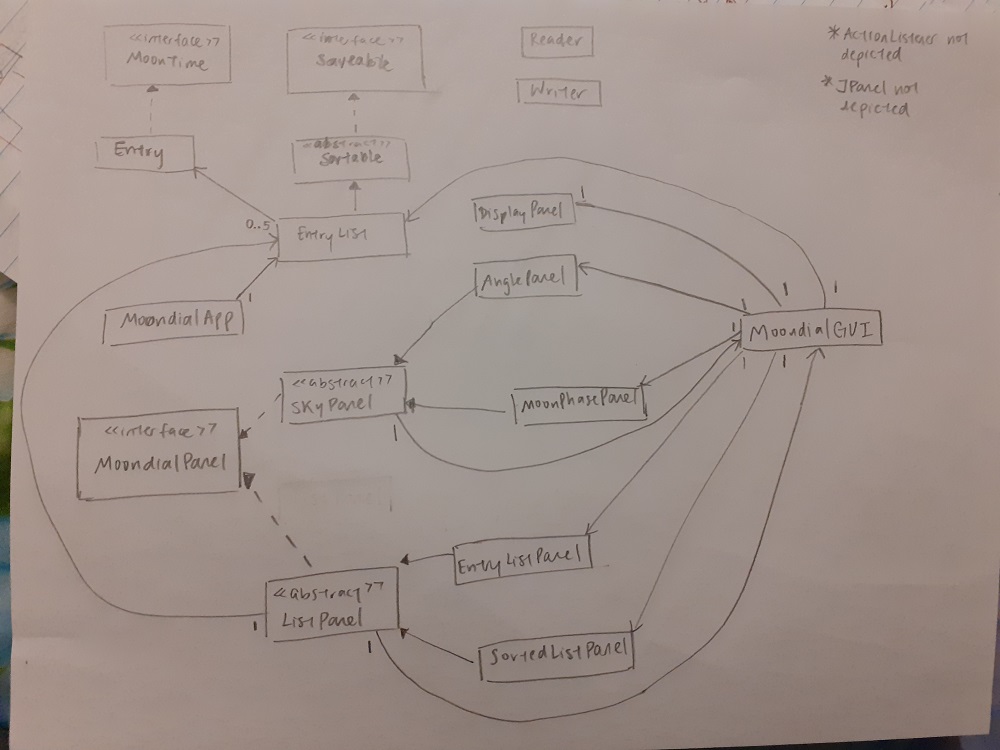 <<interface>>
MoonTime
<<interface>>
Saveable
Reader
Writer
*ActionListener not
depicted
*JPanel not
depicted
Entry
<<abstract>>
Sortable
0..5
EntryList
DisplayPanel
1
AnglePanel
1
MoondialApp
1
1
1
1
MoondialGUI
1
1
<<abstract>>
SkyPanel
1
MoonPhasePanel
<<interface>>
MoondialPanel
EntryListPanel
<<abstract>>
ListPanel
1
1
SortedListPanel